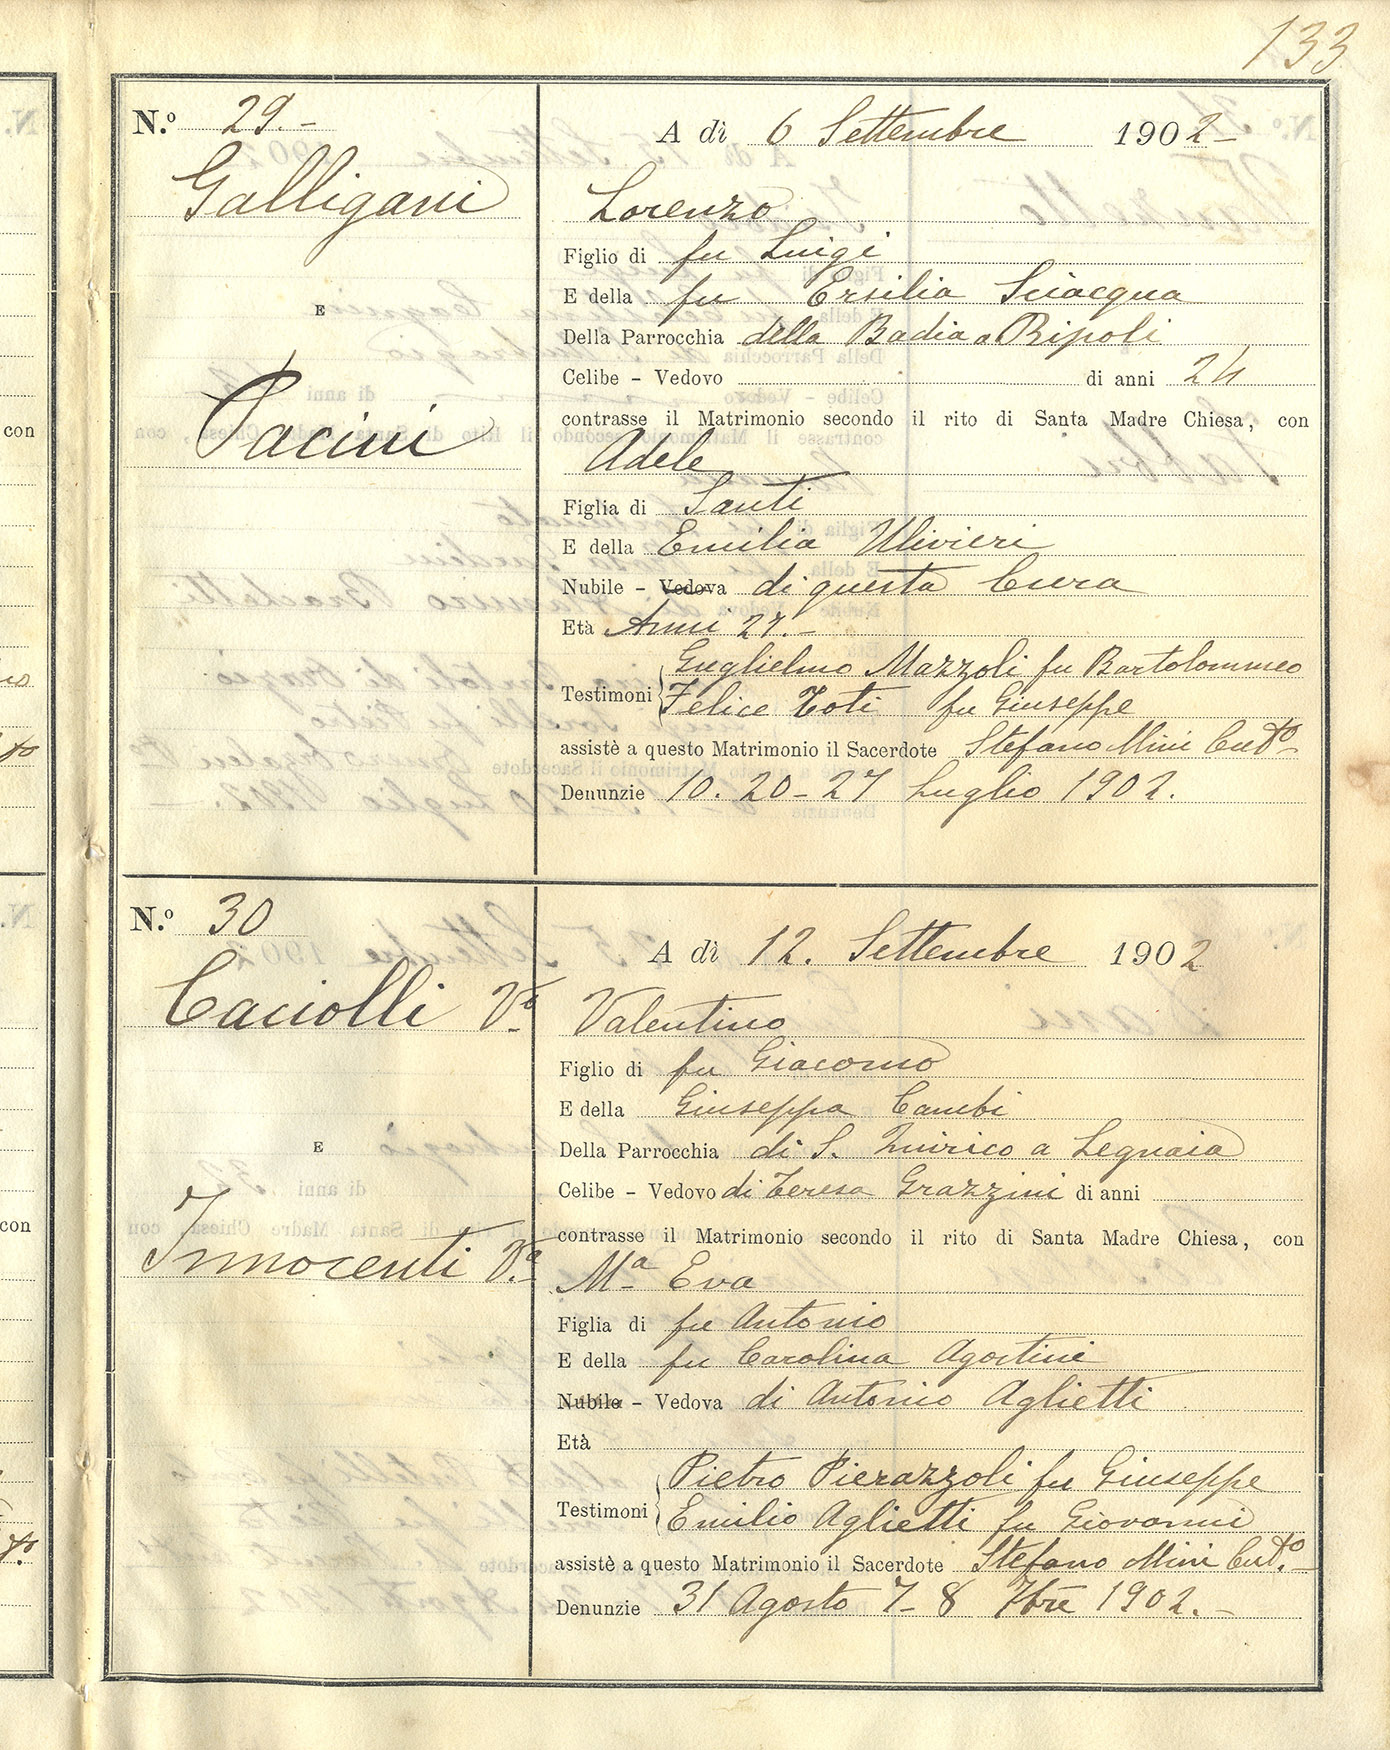 133
N.º 29.-
Galligani
E
Pacini
A dì 6 Settembre 1902-
Lorenzo
Figlio di fu Luigi
E della fu Ersilia Sciacqua
Della Parrocchia della Badia a Ripoli
Celibe - Vedovo di anni 24
contrasse il Matrimonio secondo il rito di Santa Madre Chiesa, con
Adele
Figlia di Santi
E della Emilia Ulivieri
Nubile - Vedova di questa Cura
Età Anni 27.-
Testimoni Guglielmo Mazzoli fu Bartolommeo
Felice Toti fu Giuseppe
assistè a questo Matrimonio il Sacerdote Stefano Mini
Denunzie 10. 20-27 Luglio 1902.
N.º 30
Caciolli Vº
E
Innocenti Vª
A dì 12. Settembre 1902
Valentino
Figlio di fu Giacomo
E della Giuseppa Cambi
Della Parrocchia di S. Quirico a Legnaia
Celibe - Vedovo di Teresa Grazzini di anni
contrasse il Matrimonio secondo il rito di Santa Madre Chiesa, con
Mª Eva
Figlia di fu Antonio
E della fu Carolina Agostini
Nubile - Vedova di Antonio Aglietti
Età
Testimoni Pietro Pierazzoli fu Giuseppe
Emilio Aglietti fu Giovanni
assistè a questo Matrimonio il Sacerdote Stefano Mini
Denunzie 31 Agosto 7-8 7bre 1902.-
con
con